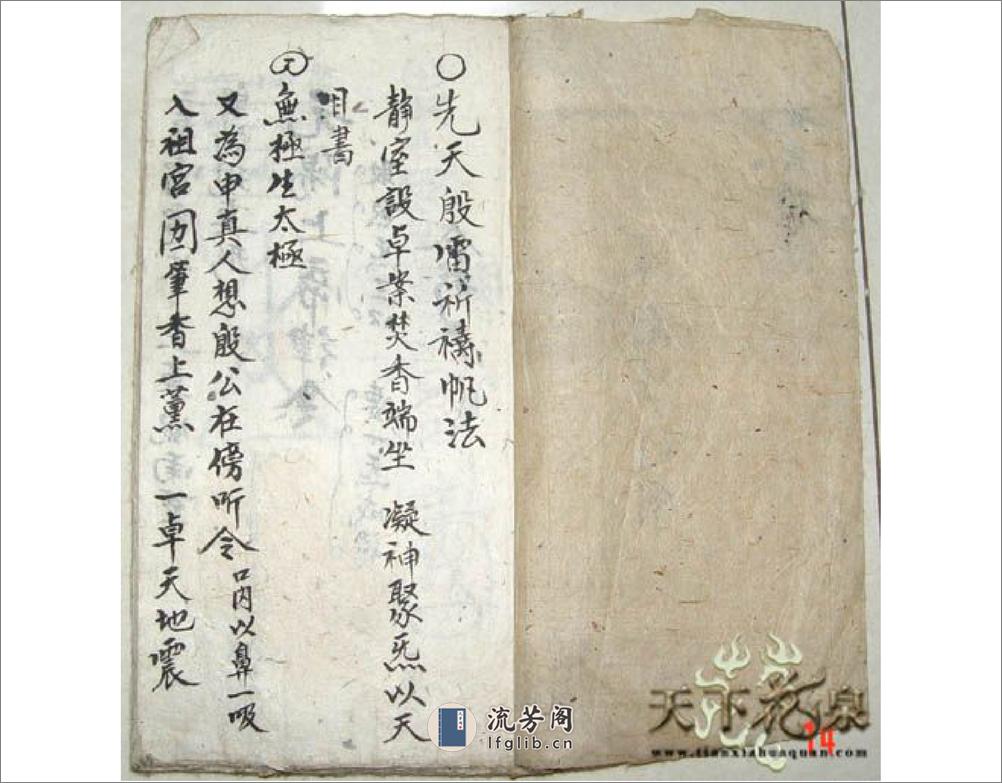 〇先天殷雷祈禱帆法
静室設卓案焚香端坐 凝神聚炁以天
目書
無極生太極
又為申真人想殷公在傍听令 口內以鼻一吸
入祖宮 筆香上薰 一卓天地震
流芳阁
lfglib.cn
天下花泉
www.tianxiahuaquan.com
14